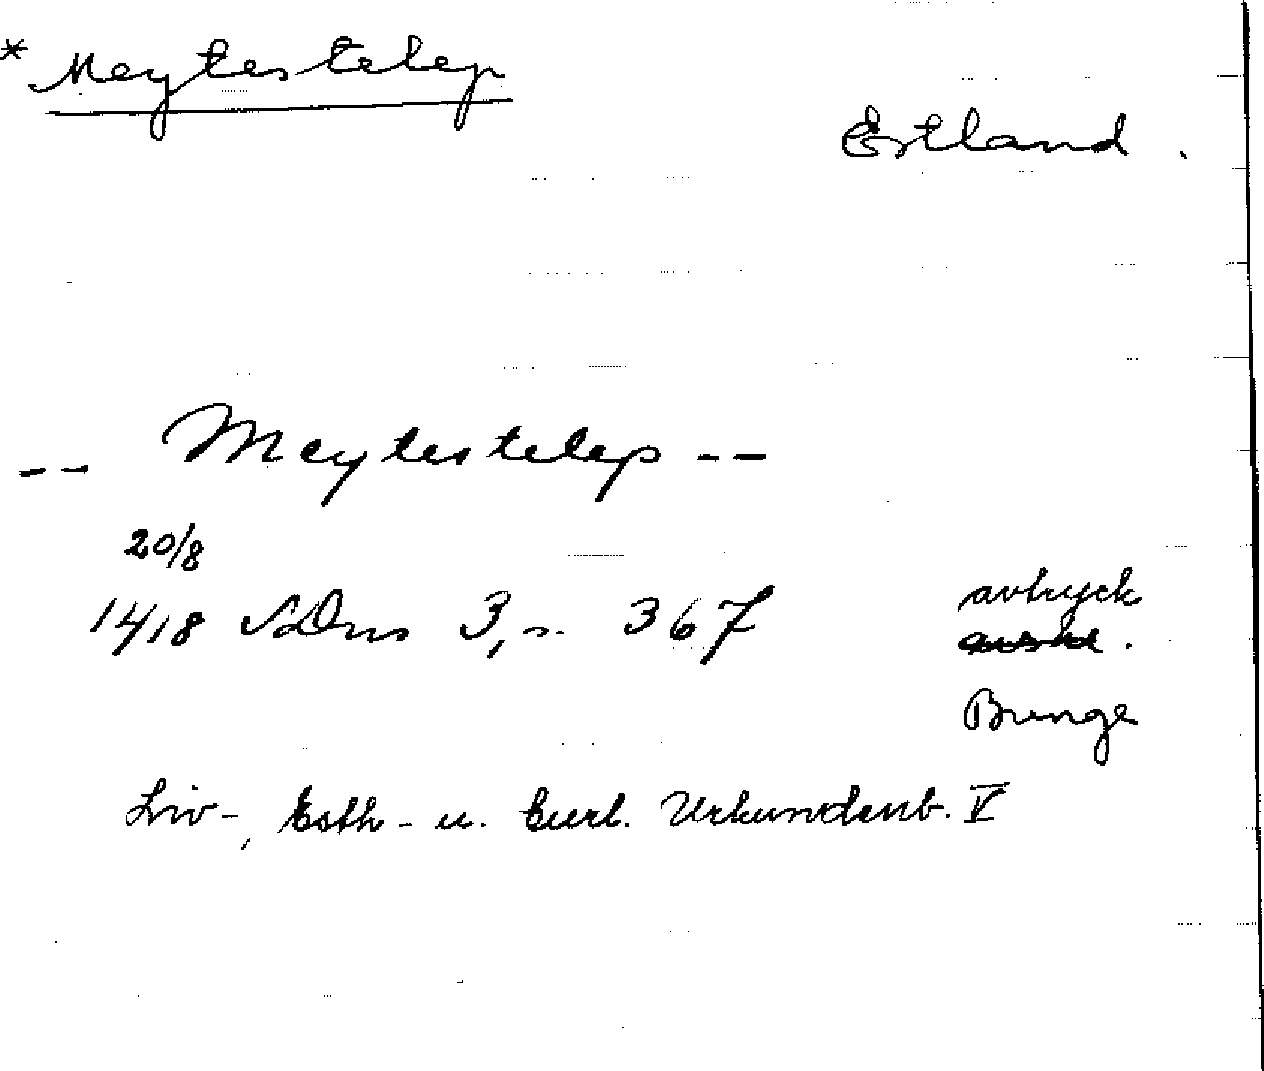 * Meytestelep
Estland.
-- Meytestelep --
20/8
1418 SDns 3, s. 367 avtryck
Bunge
Liv-, Esth- u. Curl. Urkundenb. V